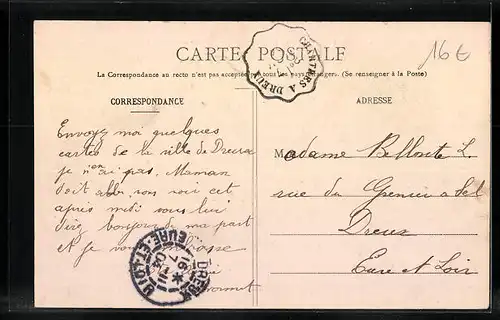 16€
CARTE POSTALE
CHARTRES A DREUX
La Correspondance au recto n'est pas acceptée par tous les pays étrangers. (Se renseigner à la Poste)
CORRESPONDANCE
Envoyez moi quelques
cartes de la ville de Dreux
je n'en ai pas. Maman
doit aller vous voir cet
après midi vous lui
direz bonjour de ma part
et je vous
DREUX
16
7
04
EURE-ET-LOIR
ADRESSE
Madame Bellonte L.
rue du Grenier à Sel
Dreux
Eure et Loir